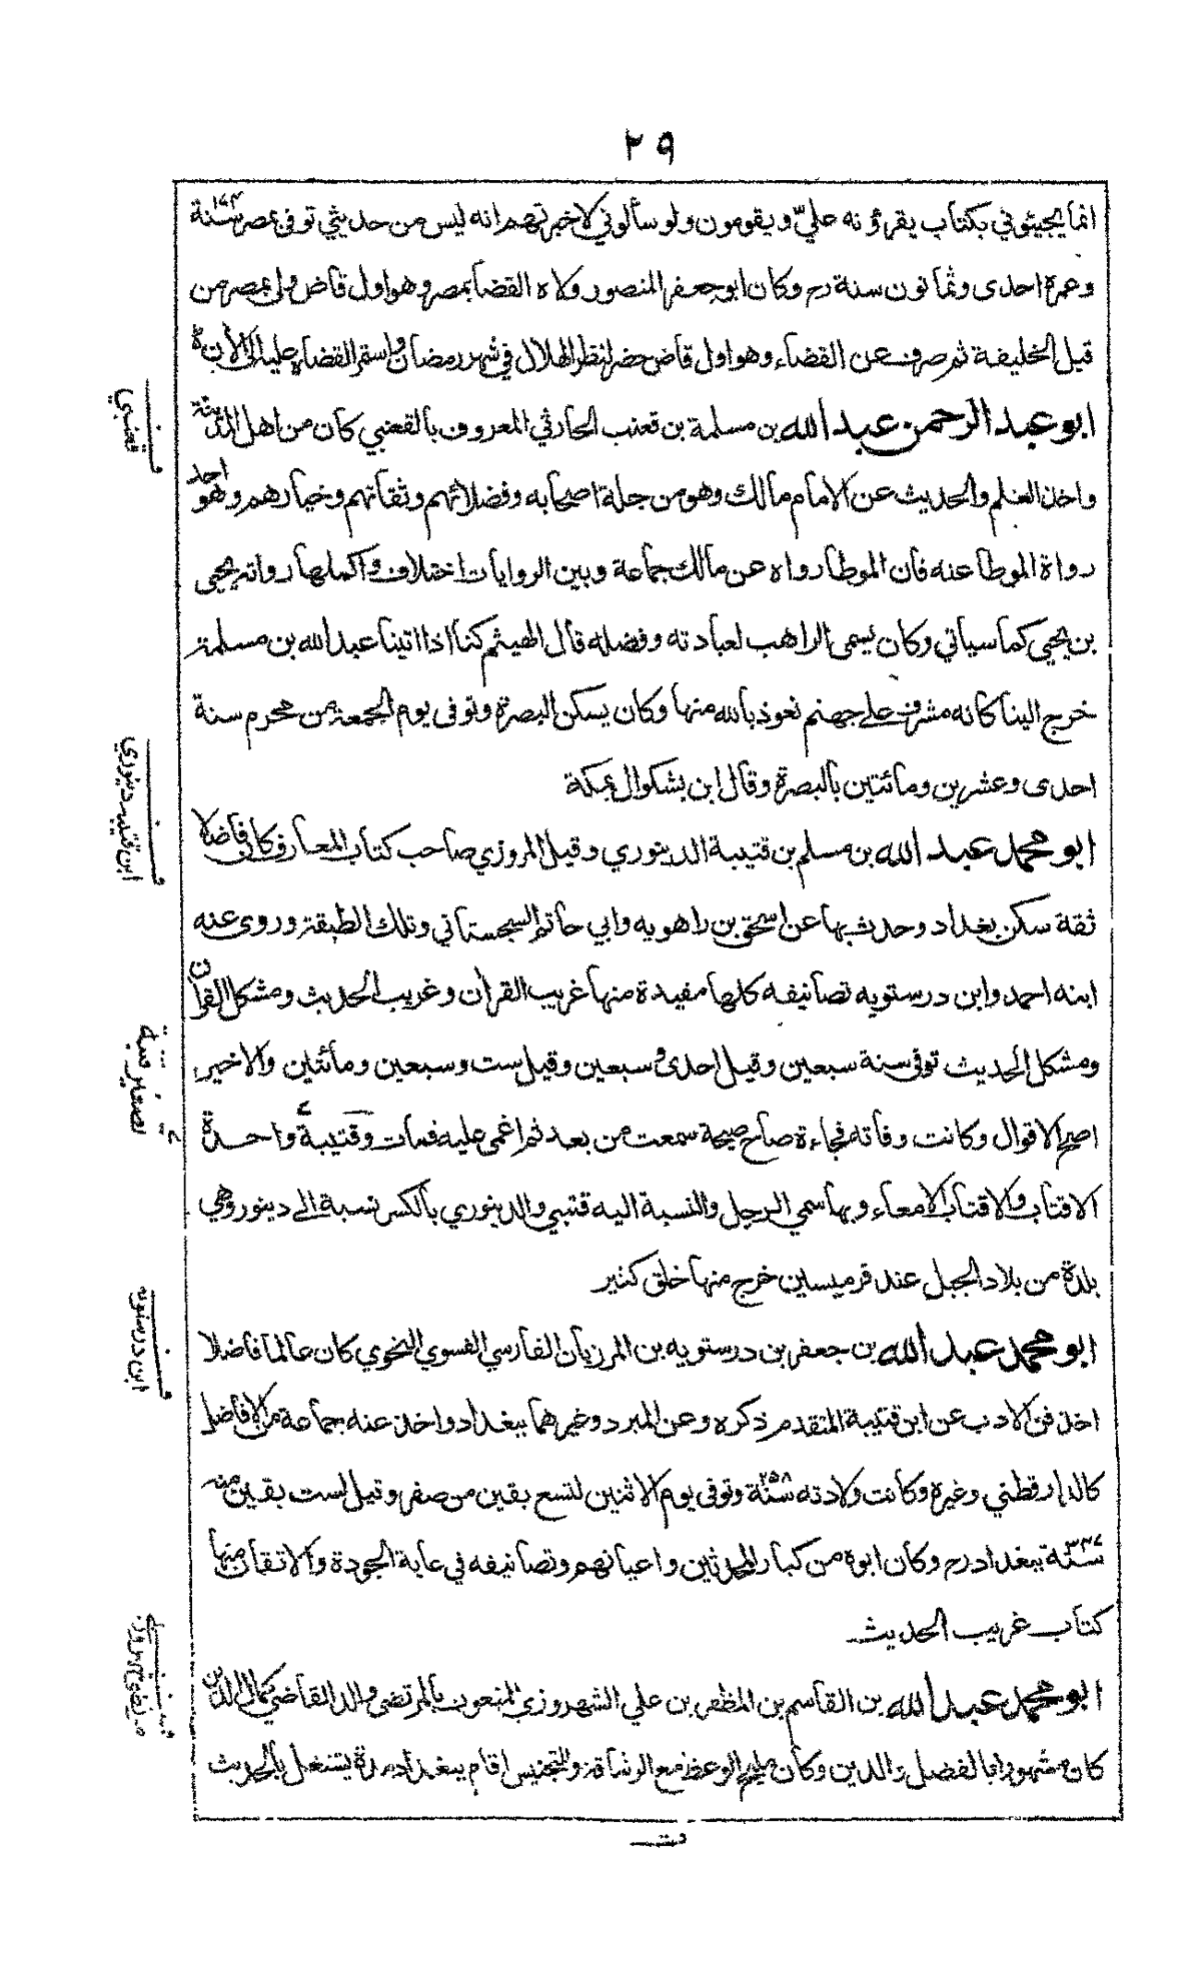 ٢٩
انما يجيئوني بكتاب يقرؤنه عليّ ويقومون ولو سألوني لاخبرتهم انه ليس من حديثي توفى بمصر سنة ١٧٤
وعمرة احدى وثمانون سنة رح وكان ابو جعفر المنصور ولاه القضا بمصر وهو اول قاض ولى بمصر من
قبل الخليفة ثم صرف عن القضاء وهو اول قاض حضر لنظر الهلال في شهر رمضان واستقر القضاء عليه الى الأن
قعنبي
ابو عبد الرحمن عبد الله بن مسلمة بن قعنب الحارثي المعروف بالقعنبي كان من اهل المدينة
واخذ العلم والحديث عن الامام مالك وهو من جلة اصحابه وفضلائهم وثقاتهم وخيارهم وهو احد
رواة الموطا عنه فان الموطا رواه عن مالك جماعة وبين الروايات اختلاف واكملها رواته يحيى
بن يحيى كما سياتي وكان يسمى الراهب لعبادته وفضله قال الهيثم كنا اذا اتينا عبد الله بن مسلمة
خرج الينا كانه مشرف على جهنم نعوذ بالله منها وكان يسكن البصرة وتوفى يوم الجمعة من محرم سنة
احدى وعشرين ومائتين بالبصرة وقال ابن بشكوال بمكة
ابن قتيبه دينوري
ابو محمد عبد الله بن مسلم بن قتيبة الدينوري وقيل المروزي صاحب كتاب المعارف كان فاضلا
ثقة سكن بغداد وحدث بها عن اسحق بن راهويه وابي حاتم السجستاني وتلك الطبقة وروى عنه
ابنه احمد وابن درستويه تصانيفه كلها مفيدة منها غريب القران وغريب الحديث ومشكل القران
ومشكل الحديث توفى سنة سبعين وقيل احدى وسبعين وقيل ست وسبعين ومائتين والاخير
اصح الاقوال وكانت وفاته فجاءة صاح صيحة سمعت من بعد ثم اغمى عليه فمات وقتيبة واحدة
الاقتاب والاقتاب الامعاء وبها سمي الرجل والنسبة اليه قتبي والدينوري بالكسر نسبة الى دينور وهي
بلدة من بلاد الجبل عند قرميسين خرج منها خلق كثير
ابن درستويه
ابو محمد عبد الله بن جعفر بن درستويه بن المرزبان الفارسي الفسوي النحوي كان عالما فاضلا
اخذ فن الادب عن ابن قتيبة المتقدم ذكره وعن المبرد وغيرهما ببغداد واخذ عنه جماعة من الافاضل
كالدارقطني وغيره وكانت ولادته سنة ٢٥٨ وتوفى يوم الاثنين لتسع بقين من صفر وقيل لست بقين منه
سنة ٣٤٧ ببغداد رح وكان ابوه من كبار المحدثين واعيانهم وتصانيفه في غاية الجودة والاتقان منها
كتاب غريب الحديث
ابو محمد عبد الله بن القاسم بن المظفر بن علي الشهروزي المنعوت بالمرتضى والد القاضي كمال الدين
كان مشهورا بالفضل والدين وكان مليح الوعظ مع الرشاقة والتجنيس اقام ببغداد مدة يشتغل بالحديث